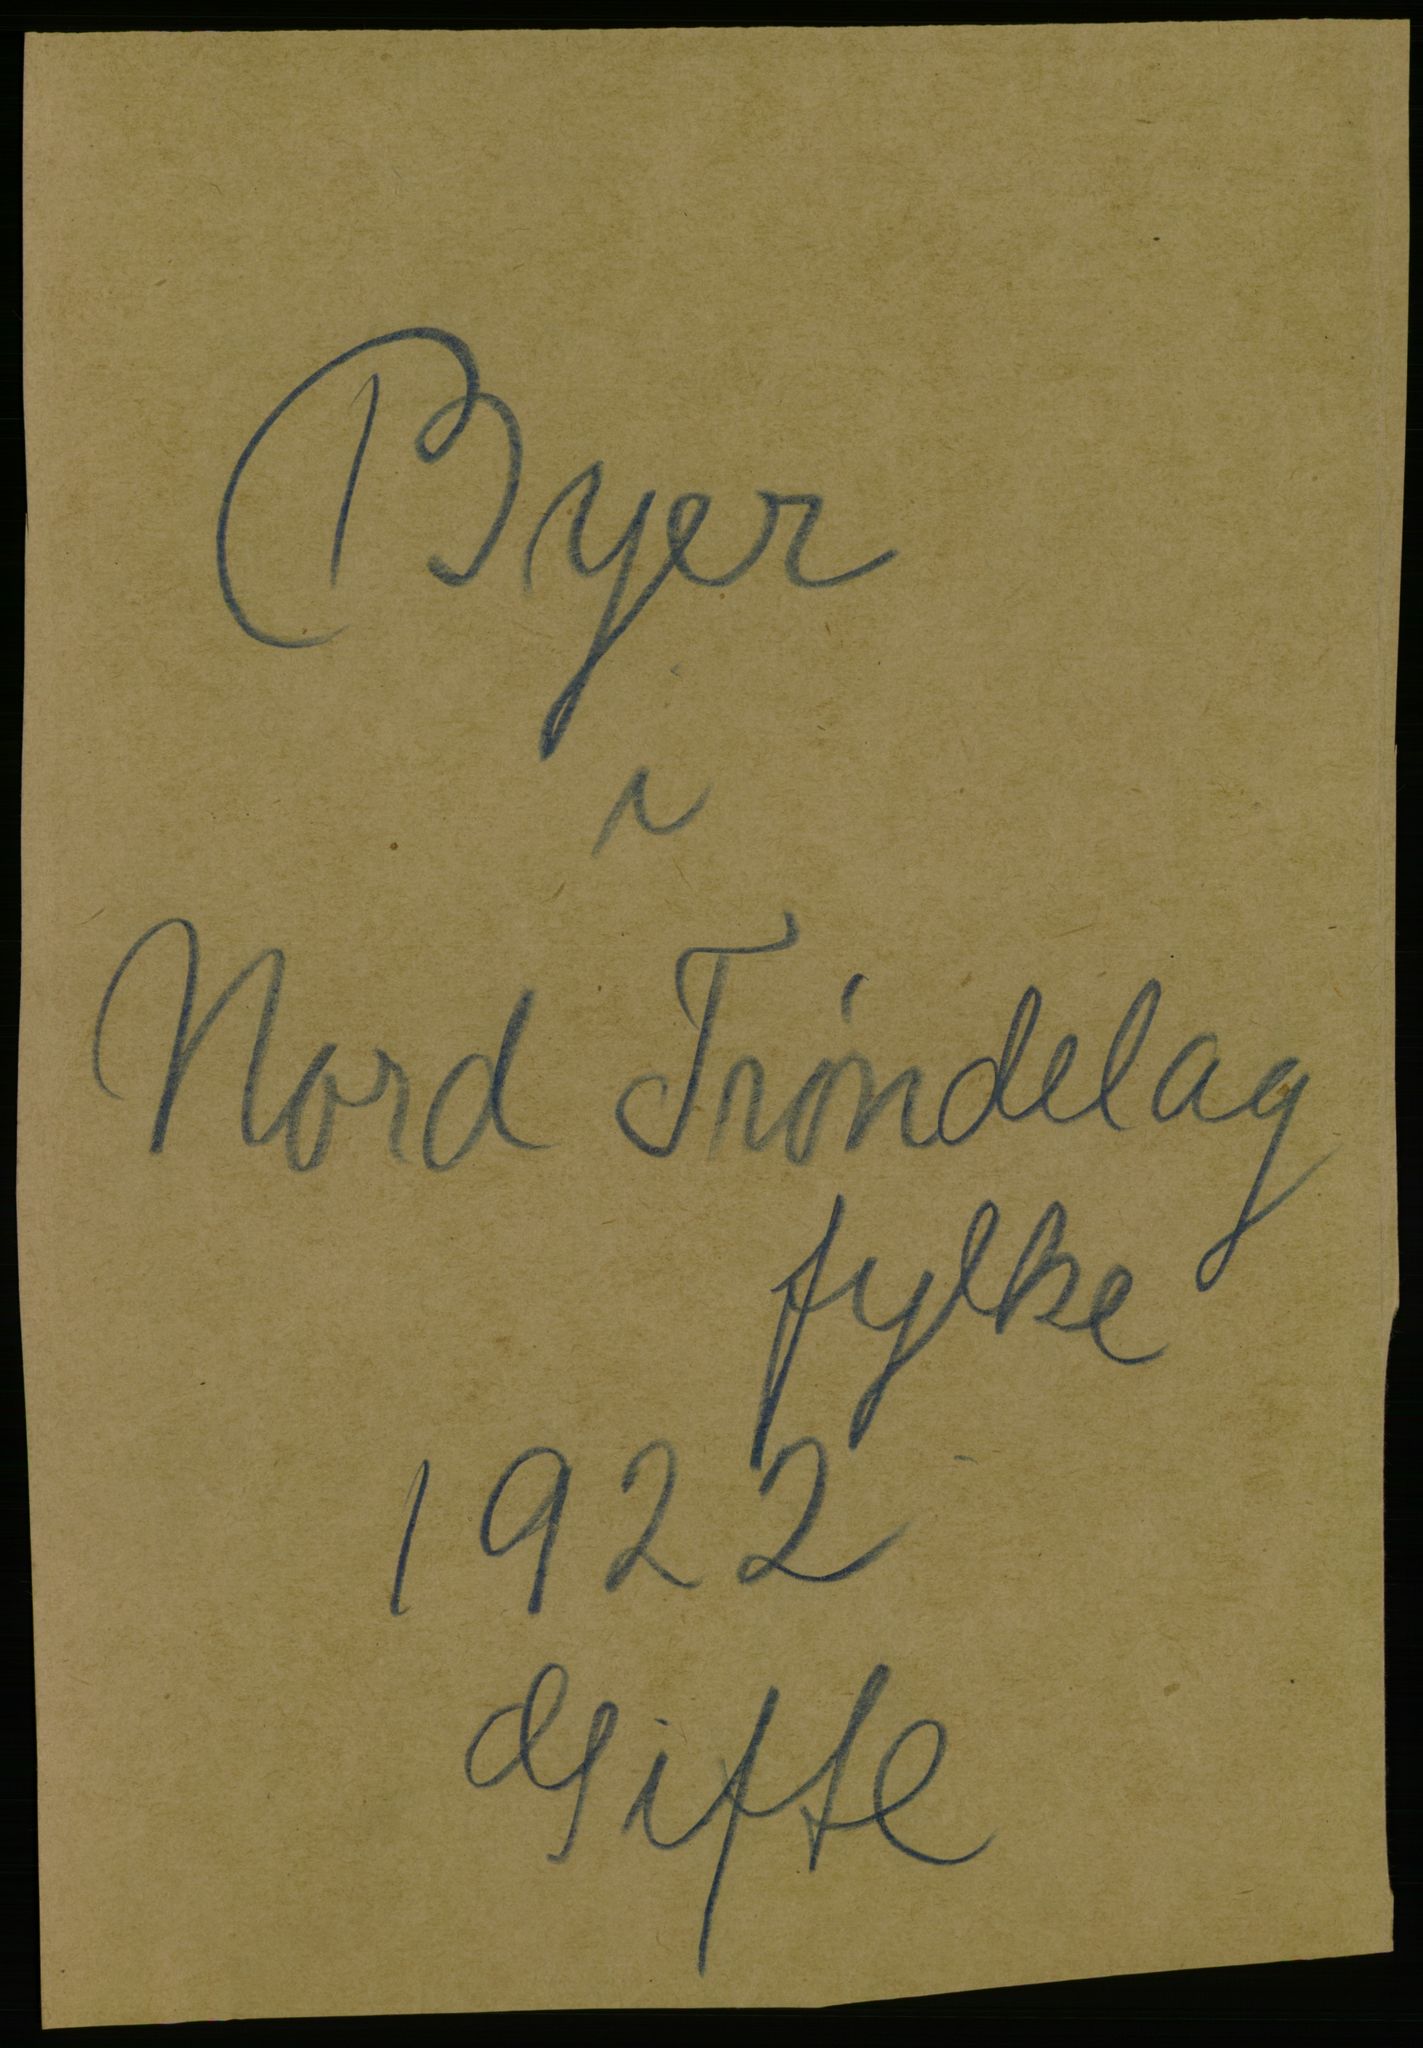 Byer
i
Nord Trøndelag
fylke
1922
Gifte